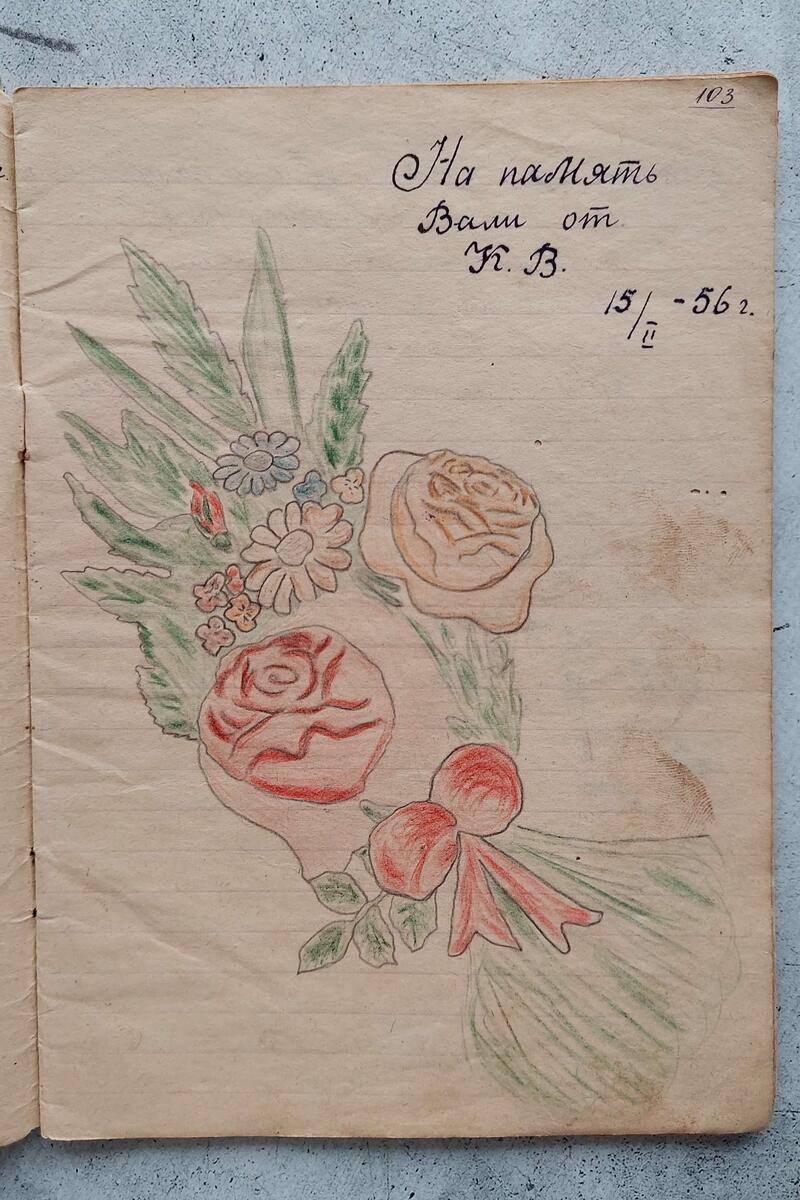 103
На память
Вали от
К. В.
15/II - 56 г.